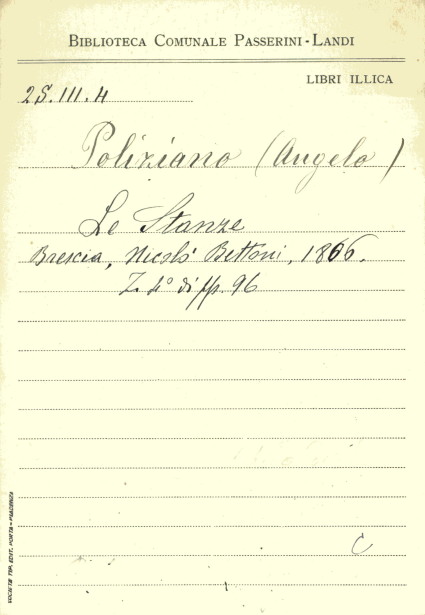 BIBLIOTECA COMUNALE PASSERINI-LANDI
LIBRI ILLICA
2S.III.4
Poliziano (Angelo)
Le Stanze
Brescia, Nicolò Bettoni, 1866.
Z. 4° di pp. 96
C
SOCIETÀ TIP. EDIT. PORTA-PIACENZA